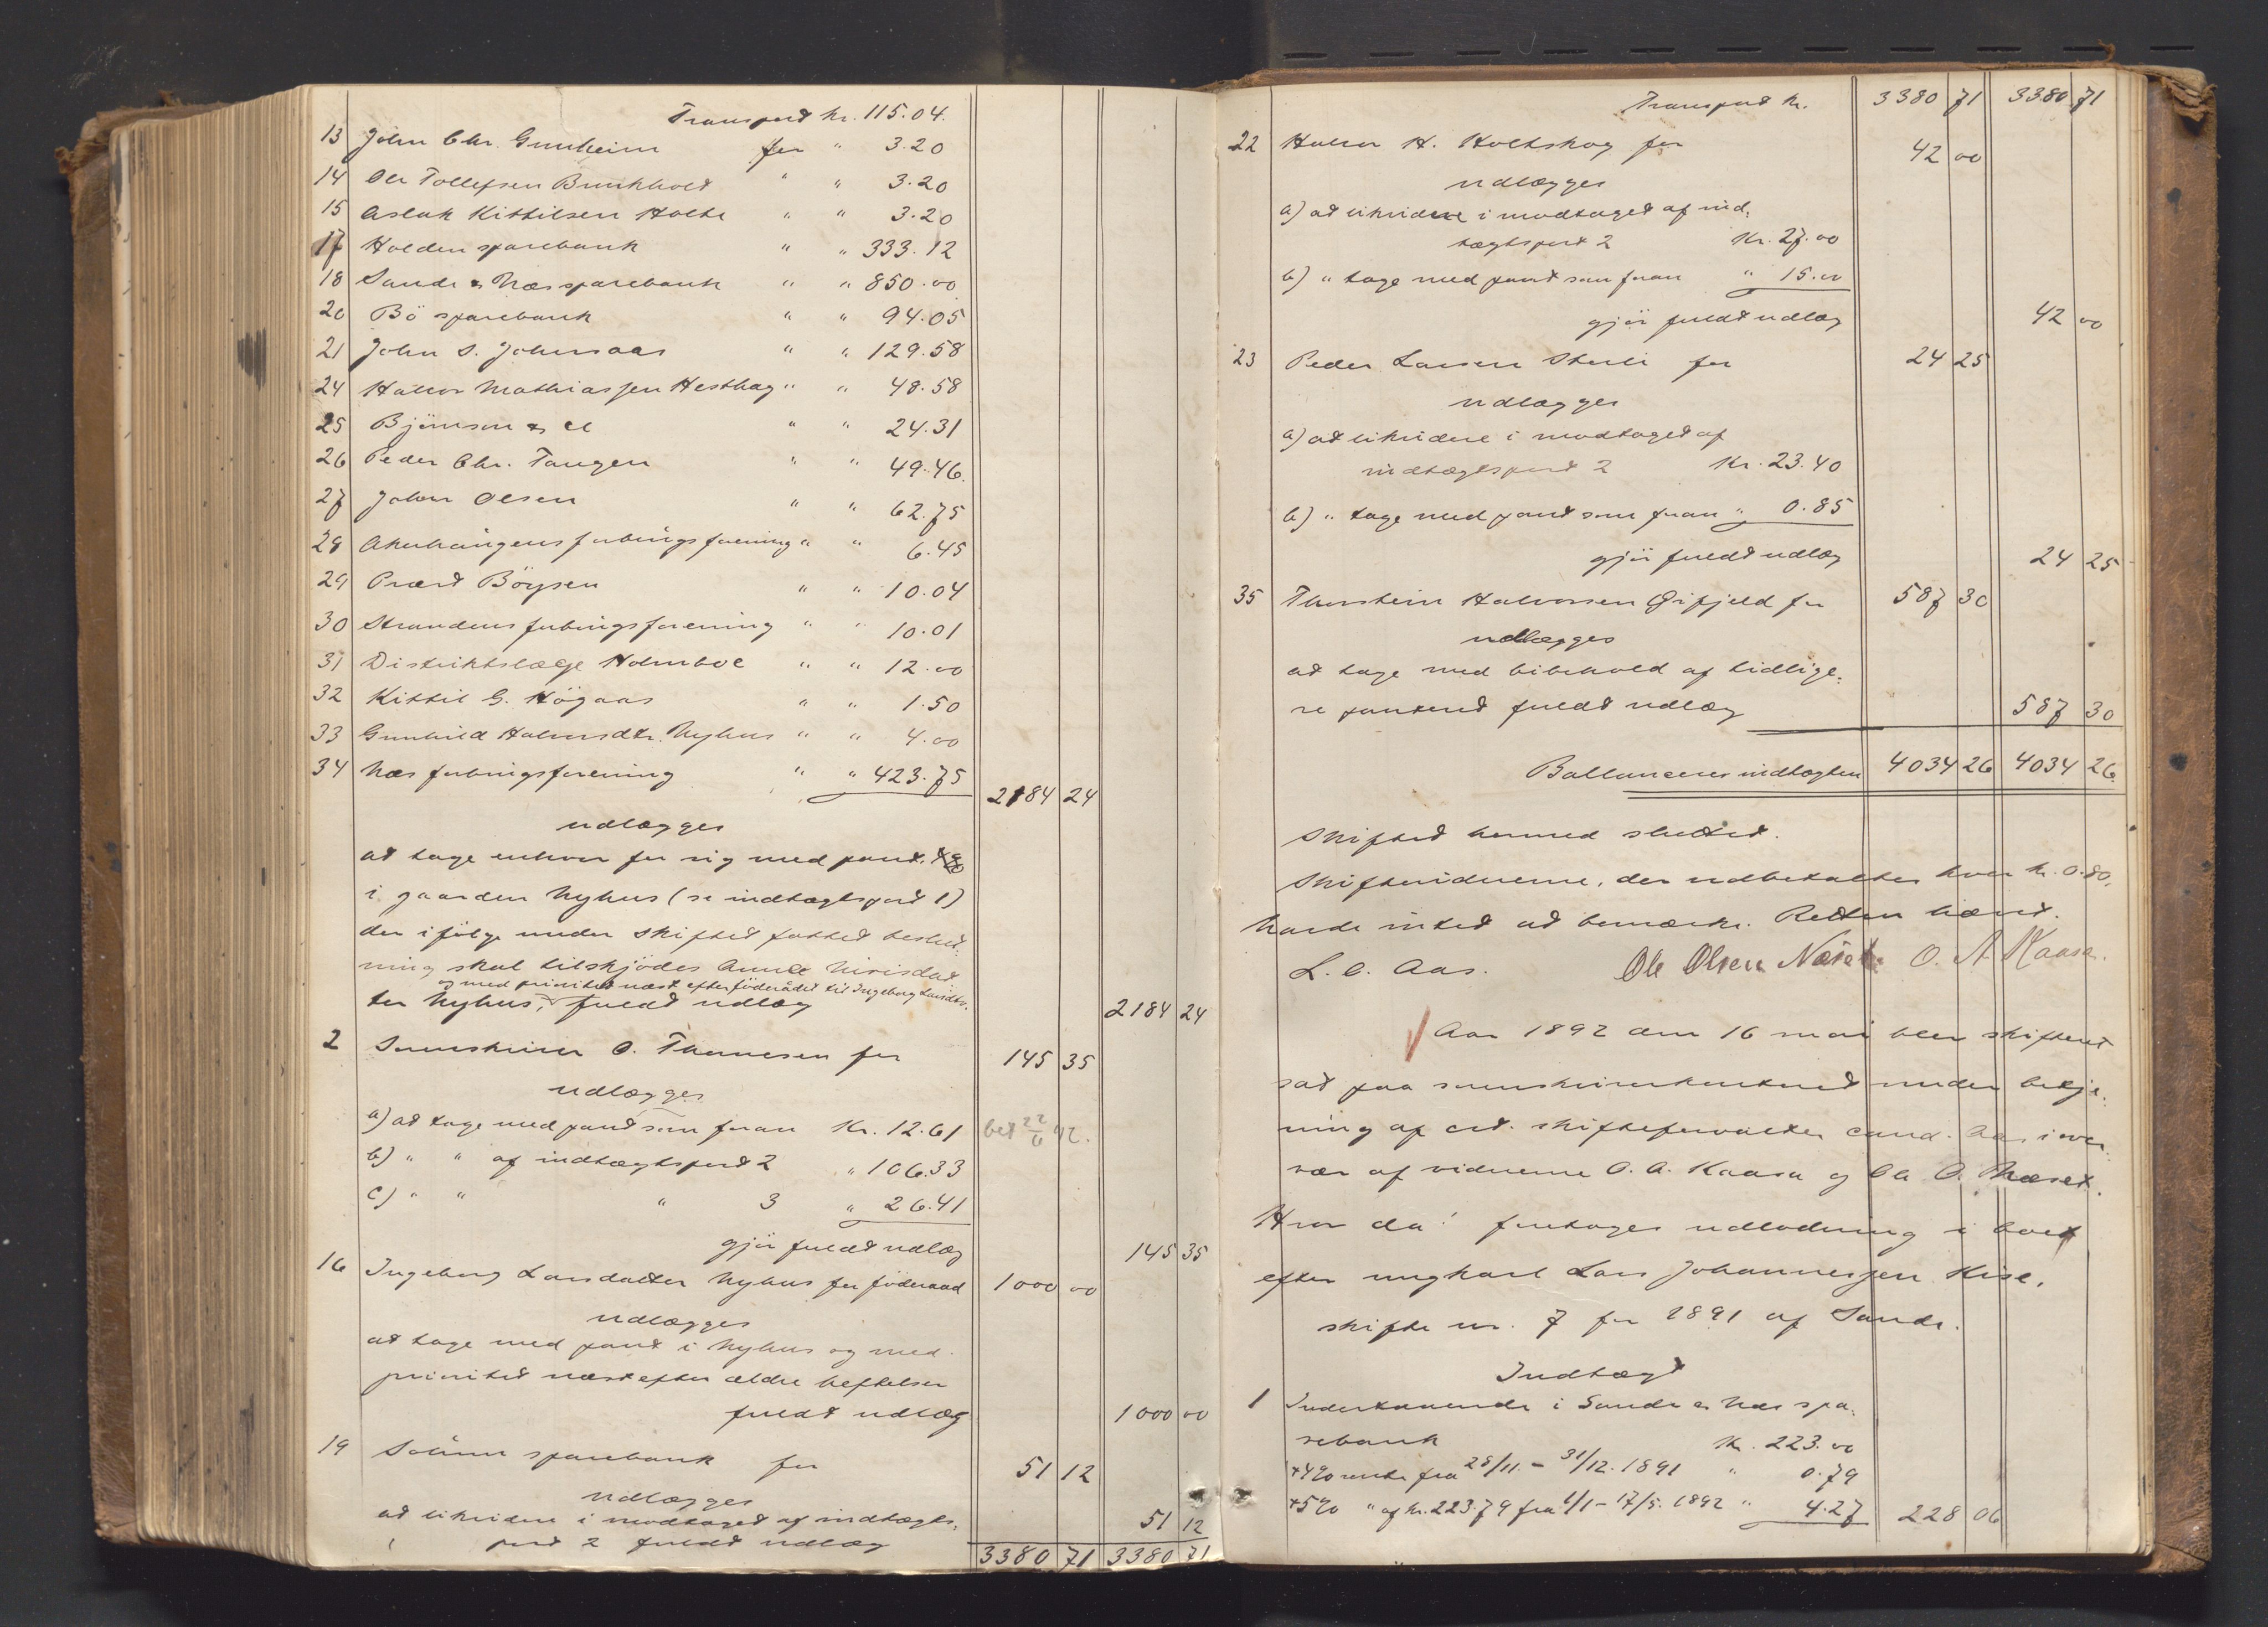 Transport kr. 115.04.
13 John Chr. Gunheim for " 3.20
14 Ole Tollefsen Brunkholt " " 3.20
15 Aslak Kittilsen Holte " " 3.20
17 Holden sparebank " " 333.12
18 Sande & Næs sparebank " " 850.00
20 Bö sparebank " " 94.05
21 John S. Johnsaas " " 129.58
24 Halvor Mathiassen Hesthag " " 48.58
25 Björnson & " " 24.31
26 Peder Chr. Tangen " " 49.46.
27 Johan Olsen " " 62.75
28 forening " " 6.45
29 Præst Böysen " " 10.04
30 Strandens forbrugsforening " " 10.01
31 Distriktslæge Holmboe " " 12.00
32 Kittil G. Högaas " " 1.50
33 Gunhild Halvorsdtr. Nyhus " " 4.00
34 Næs forbrugsforening " " 423.75 2184 24
udlægges
at tage enhver for sig med pant
i gaarden Nyhus (se indtægtspost 1)
der ifölge under skiftet fattet beslut-
ning skal tilskjödes Anne Nirisdat
og med prioritet næst efter föderådet til Ingeborg Larsdtr.
ter Nyhus, fuldt udlæg 2184 24
2 Sorenskriver O. Thomesen for 145 35
udlægges
a) at tage med pant som foran Kr. 12.61 bet 22/6 92.
b) " " af indtægtspost 2 " 106.33
c) " " " 3 " 26.41
gjör fuldt udlæg 145 35
16 Ingeborg Larsdatter Nyhus for föderaad 1000 00
udlægges
at tage med pant i Nyhus og med
prioritet næst efter ældre heftelser
fuldt udlæg 1000 00
19 Solum sparebank for 51 12
udlægges
at likvidere i modtaget af indtægts-
post 2 fuldt udlæg 51 12
3380 71 3380 71
Transport kr. 3380 71 3380 71
22 Halvor H. Holtskog for 42 00
udlægges
a) at likvidere i modtaget af ind-
tægtspost 2 Kr. 27.00
b) " tage med pant som foran " 15.00
gjör fuldt udlæg 42 00
23 Peder Larsen Sterli for 24 25
udlægges
a) at likvidere i modtaget af
indtægtspost 2 Kr. 23.40
b) " tage med pant som foran " 0.85
gjör fuldt udlæg 24 25
35 Thorstein Halvorsen Öifjeld for 587 30
udlægges
at tage med bibehold af tidlige-
re panteret fuldt udlæg 587 30
Ballancerer indtægten 4034 26 4034 26.
Skiftet hermed sluttet.
Skiftevidnerne, der udbetaltes hver kr. 0.80,
havde intet at bemærke. Retten hævet.
L. C. Aas. Ole Olsen Næset. O. A. Kaasa.
Aar 1892 den 16 mai blev skifteret
sat paa sorenskriverkontoret under betje-
ning af cst. skifteforvalter cand. Aas i over
vær af vidnerne O. A. Kaasa og Ole O. Næset.
Hvor da: foretoges udlodning i boet
efter ungkarl Lars Johannessen Kise,
skifte nr. 7 for 1891 af Sande.
Indtægt
1 Indestaaende i Sande & Næs spa-
rebank Kr. 223.00
+ 4% rente fra 25/11. - 31/12. 1891 " 0.79
+ 5% " af kr. 223.79 fra 1/1 - 17/5. 1892 " 4.27 228 06